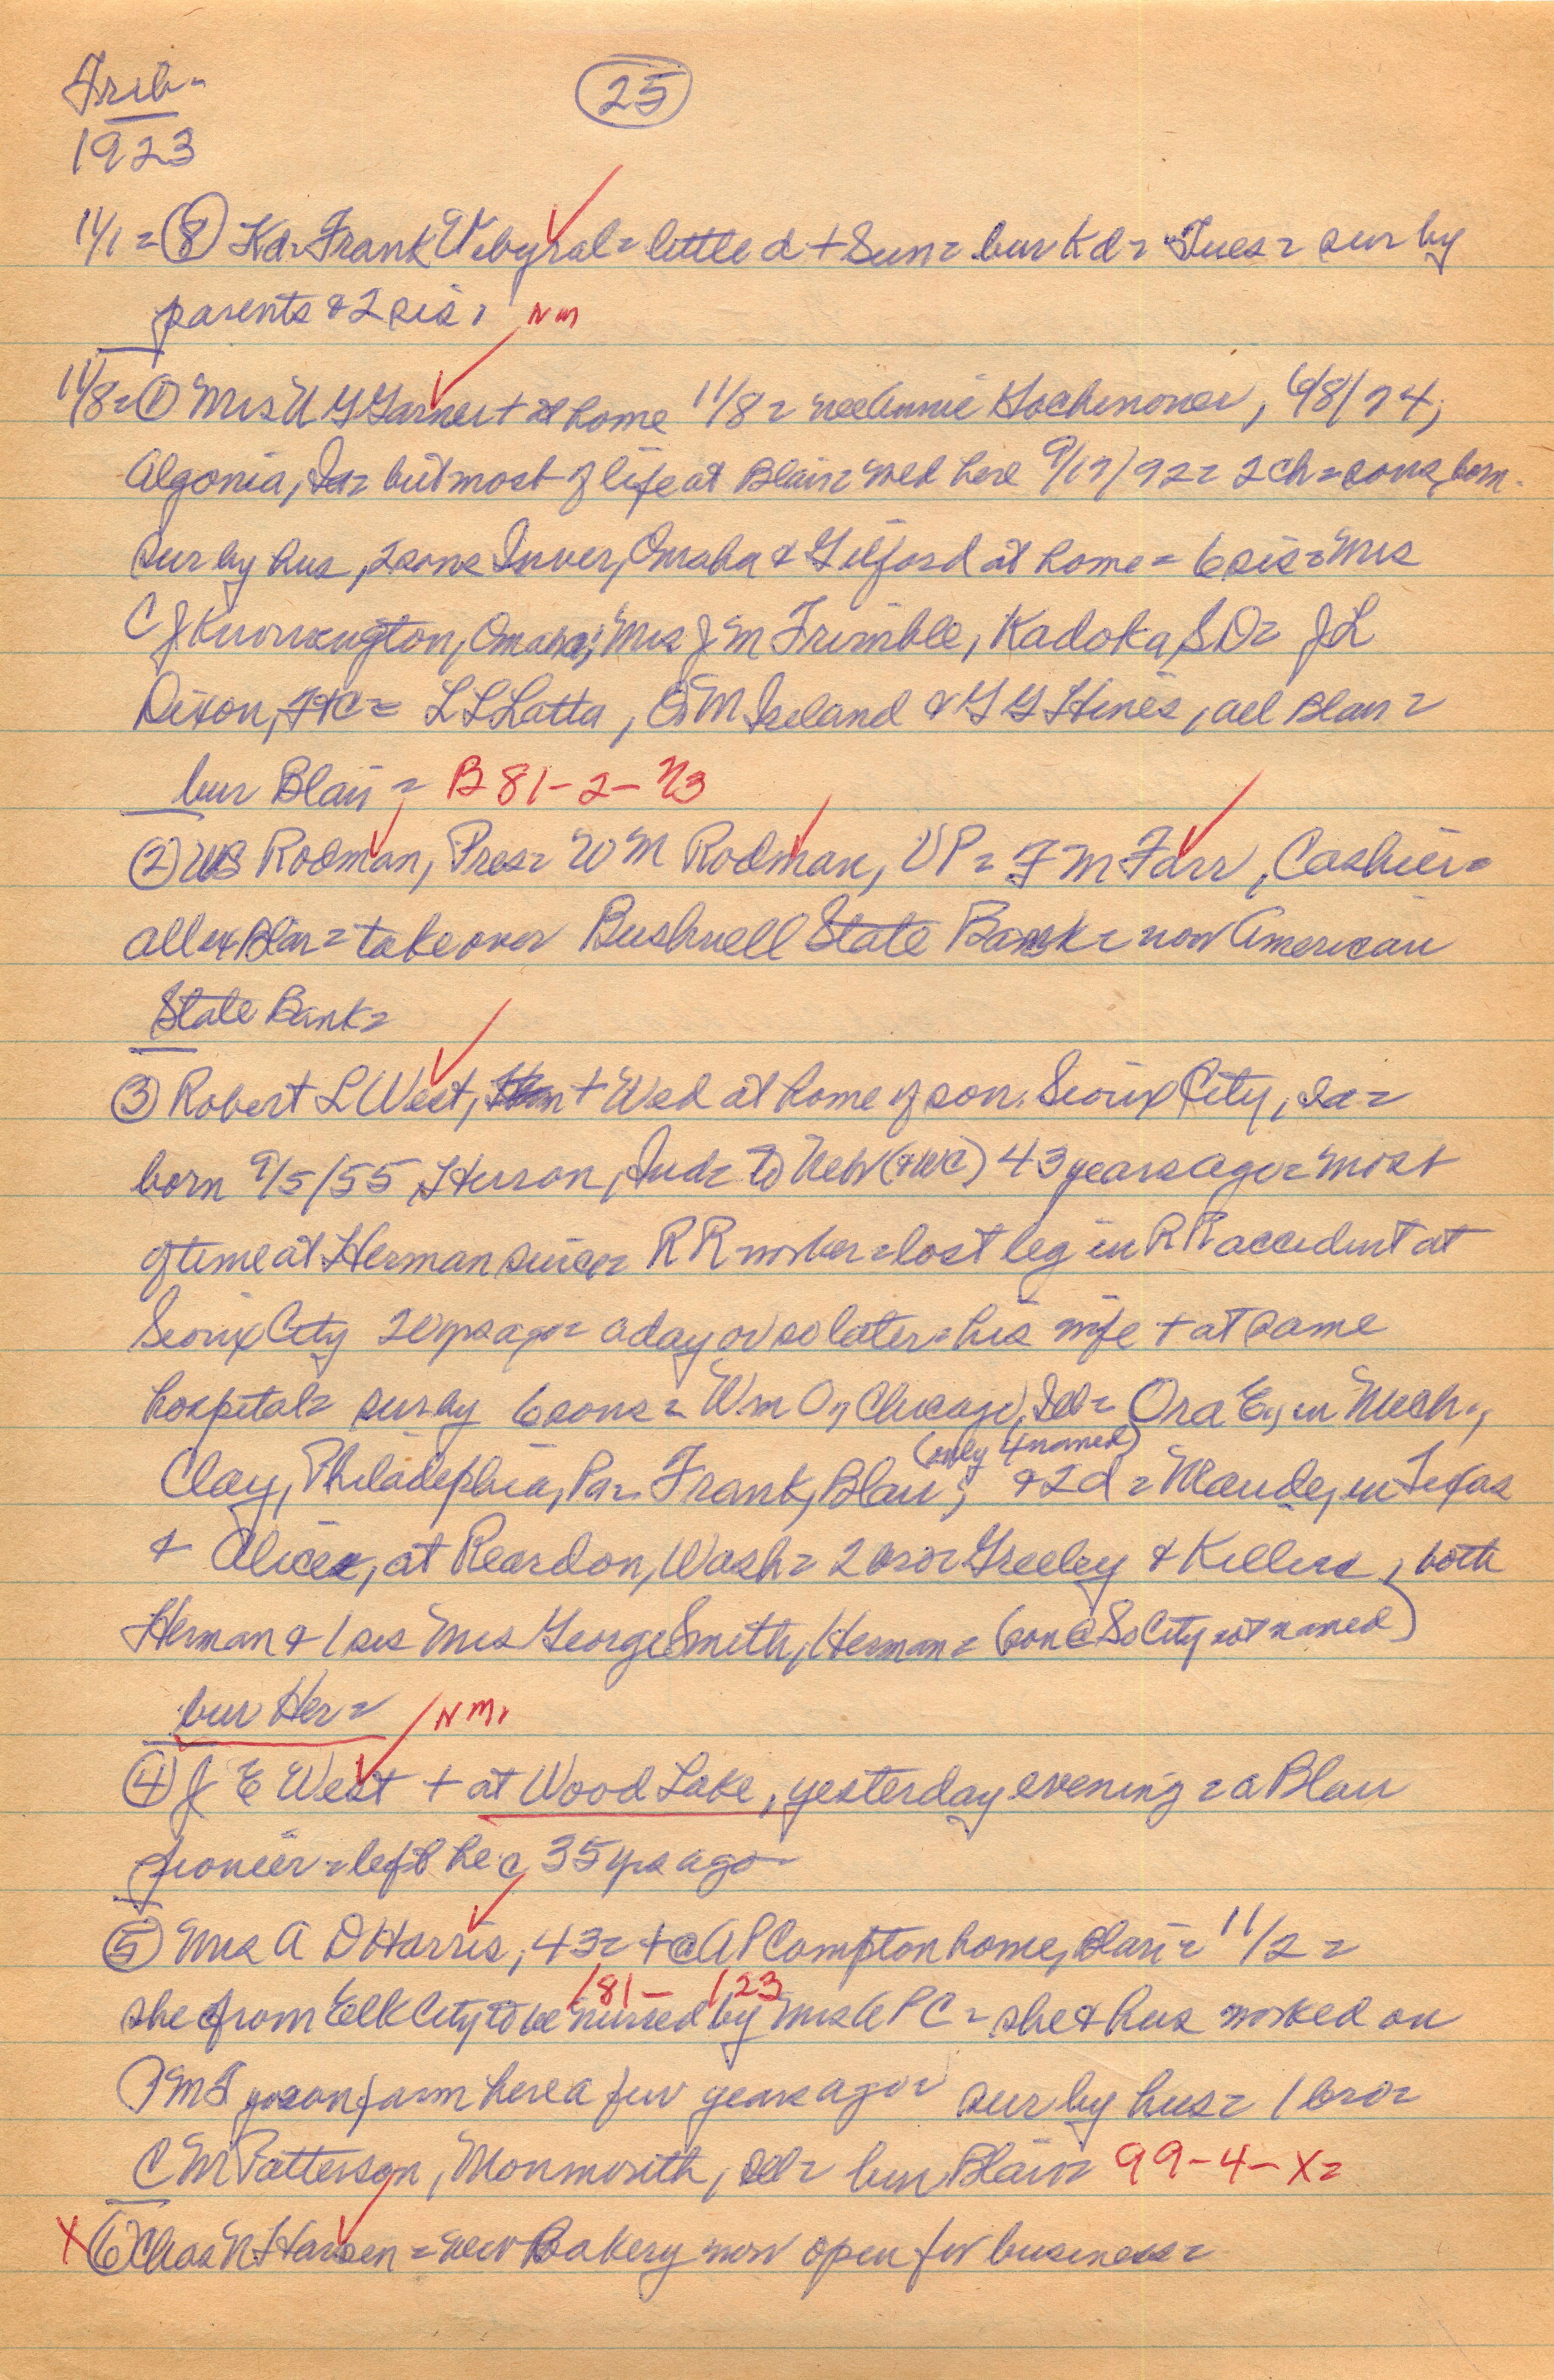 Trib-
25
1923
11/1 = (8) Kd = Frank Vybyral = little d + Sun = bur Kd = Tues = sur by
parents & 2 sis, NM
11/8 = (1) Mrs U G Garner + at home 11/8 = nee Annie Gochenouer, 6/8/74,
Algonia, Ia = but most of life at Blair = wed here 9/17/92 = 2 ch = sons, born.
Sur by hus, 2 sons Inver, Omaha & Gilford at home = 6 sis = Mrs
C J , Omaha; Mrs J M Trimble, Kadoka, SD = J L
Dixon, = L L Latta, O M Ireland & G G Hines, all Blair =
bur Blair = B 81-2-N3
(2) Rodman, Pres = W M Rodman, VP = F M Farr, Cashier =
all ex Blair = take over Bushnell State Bank = now American
State Bank =
(3) Robert L West, + Wed at home of son, Sioux City, Ia =
born 9/5/55, Huron, Ind = to Neb (& WC) 43 years ago = most
of time at Herman since = RR worker = lost leg in RR accident at
Sioux City 20 yrs ago = a day or so later = his wife + at same
hospital = sur by 6 sons = Wm O, Chicago, Ill = Ora E, in Mich.,
(only 4 named)
Clay, Philadelphia, Pa = Frank, Blair; & 2 d = Maude, in Texas
& Alice, at Reardon, Wash = 2 bro = Greeley & , both
Herman & 1 sis Mrs George Smith, Herman = (son @ So City not named)
bur Her = NM,
(4) J E West + at Wood Lake, yesterday evening = a Blair
pioneer = left here 35 yrs ago
(5) Mrs A D Harris, 43 = + @ A P Compton home, Blair = 11/2 =
181- 123
she from Elk City to be nursed by Mrs A P C = she & hus worked on
farm here a few years ago = sur by hus = 1 bro =
C M Patterson, Monmouth, Ill = bur Blair = 99-4-X=
X (6) Chas N Hansen = new Bakery now open for business =